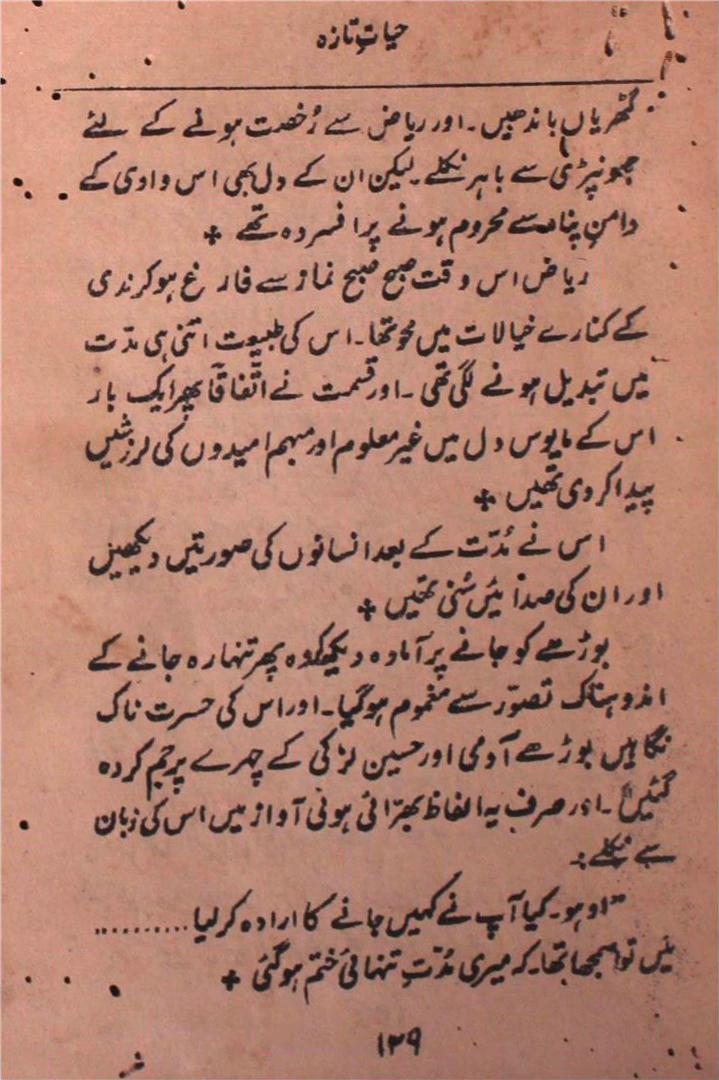 حیاتِ تازہ
گٹھریاں باندھیں۔ اور ریاض سے رُخصت ہونے کے لئے
جھونپڑی سے باہر نکلے۔ لیکن ان کے دل بھی اس وادی کے
دامنِ پناہ سے محروم ہونے پر افسردہ تھے +
ریاض اس وقت صبح صبح نماز سے فارغ ہو کر ندی
کے کنارے خیالات میں محو تھا۔ اس کی طبیعت اتنی ہی مدّت
میں تبدیل ہونے لگی تھی۔ اور قسمت نے اتّفاقاً پھر ایک بار
اس کے مایوس دل میں غیر معلوم اور مبہم امیدوں کی لرزشیں
پیدا کر دی تھیں +
اس نے مُدّت کے بعد انسانوں کی صورتیں دیکھیں
اور ان کی صدائیں سُنی تھیں +
بوڑھے کو جانے پر آمادہ دیکھ کر وہ پھر تنہا رہ جانے کے
اندوہناک تصوّر سے مغموم ہو گیا۔ اور اس کی حسرت ناک
نگاہیں بوڑھے آدمی اور حسین لڑکی کے چہرے پر جم کر رہ
گئیں۔ اور صرف یہ الفاظ بھرّائی ہوئی آواز میں اس کی زبان
سے نکلے:
"اوہو۔ کیا آپ نے کہیں جانے کا ارادہ کر لیا..........
میں تو سمجھا تھا۔ کہ میری مُدّتِ تنہائی ختم ہو گئی +
۱۳۹